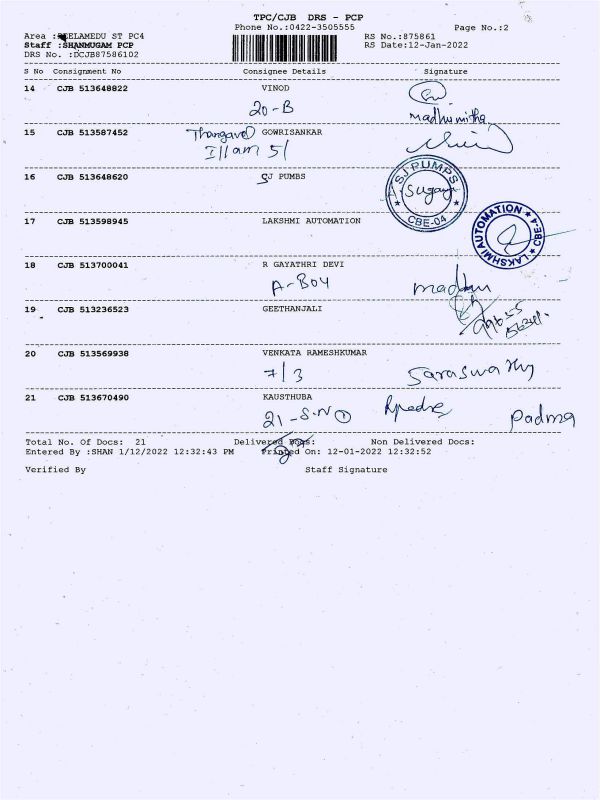 TPC/CJB DRS - PCP
Phone No.:0422-3505555 Page No.:2
Area : EELAMEDU ST PC4 RS No.:875861
Staff :SHANMUGAM PCP RS Date:12-Jan-2022
DRS No. :DCJB87586102
S No Consignment No Consignee Details Signature
14 CJB 513648822 VINOD
20-B madhumitha
15 CJB 513587452 Thangavel GOWRISANKAR
Illam 5/
16 CJB 513648620 SJ PUMBS
SJ PUMPS
Sugaya
CBE-04
17 CJB 513598945 LAKSHMI AUTOMATION
LAKSHMI AUTOMATION CBE4
18 CJB 513700041 R GAYATHRI DEVI
A-Boy madhu
19 CJB 513236523 GEETHANJALI
20 CJB 513569938 VENKATA RAMESHKUMAR
7/3 Saraswathy
21 CJB 513670490 KAUSTHUBA
21-S.N 1 Padma
Total No. Of Docs: 21 Delivered Docs: Non Delivered Docs:
Entered By :SHAN 1/12/2022 12:32:43 PM Printed On: 12-01-2022 12:32:52
Verified By Staff Signature